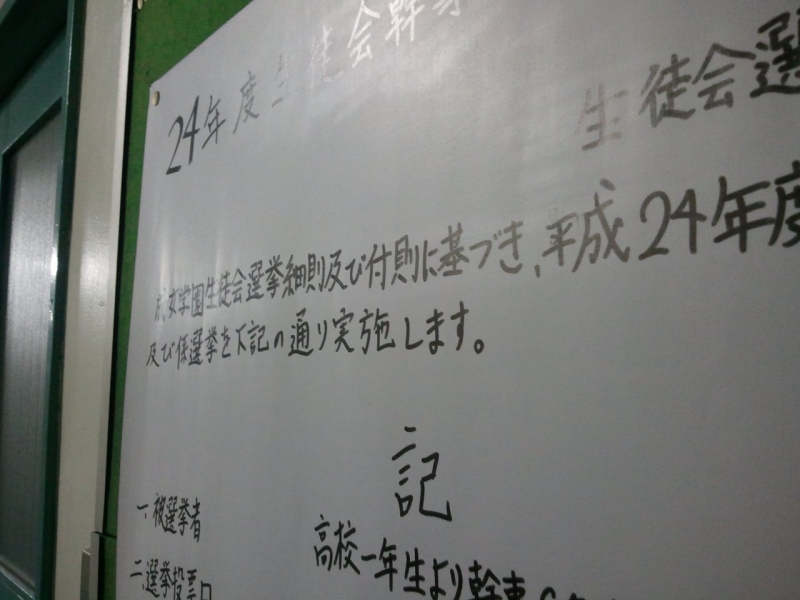 24年度生徒会幹事
生徒会選
成女学園生徒会選挙細則及び付則に基づき、平成24年度
及び係選挙を下記の通り実施します。
記
一、被選挙者
高校一年生より幹事6
二、選挙投票日